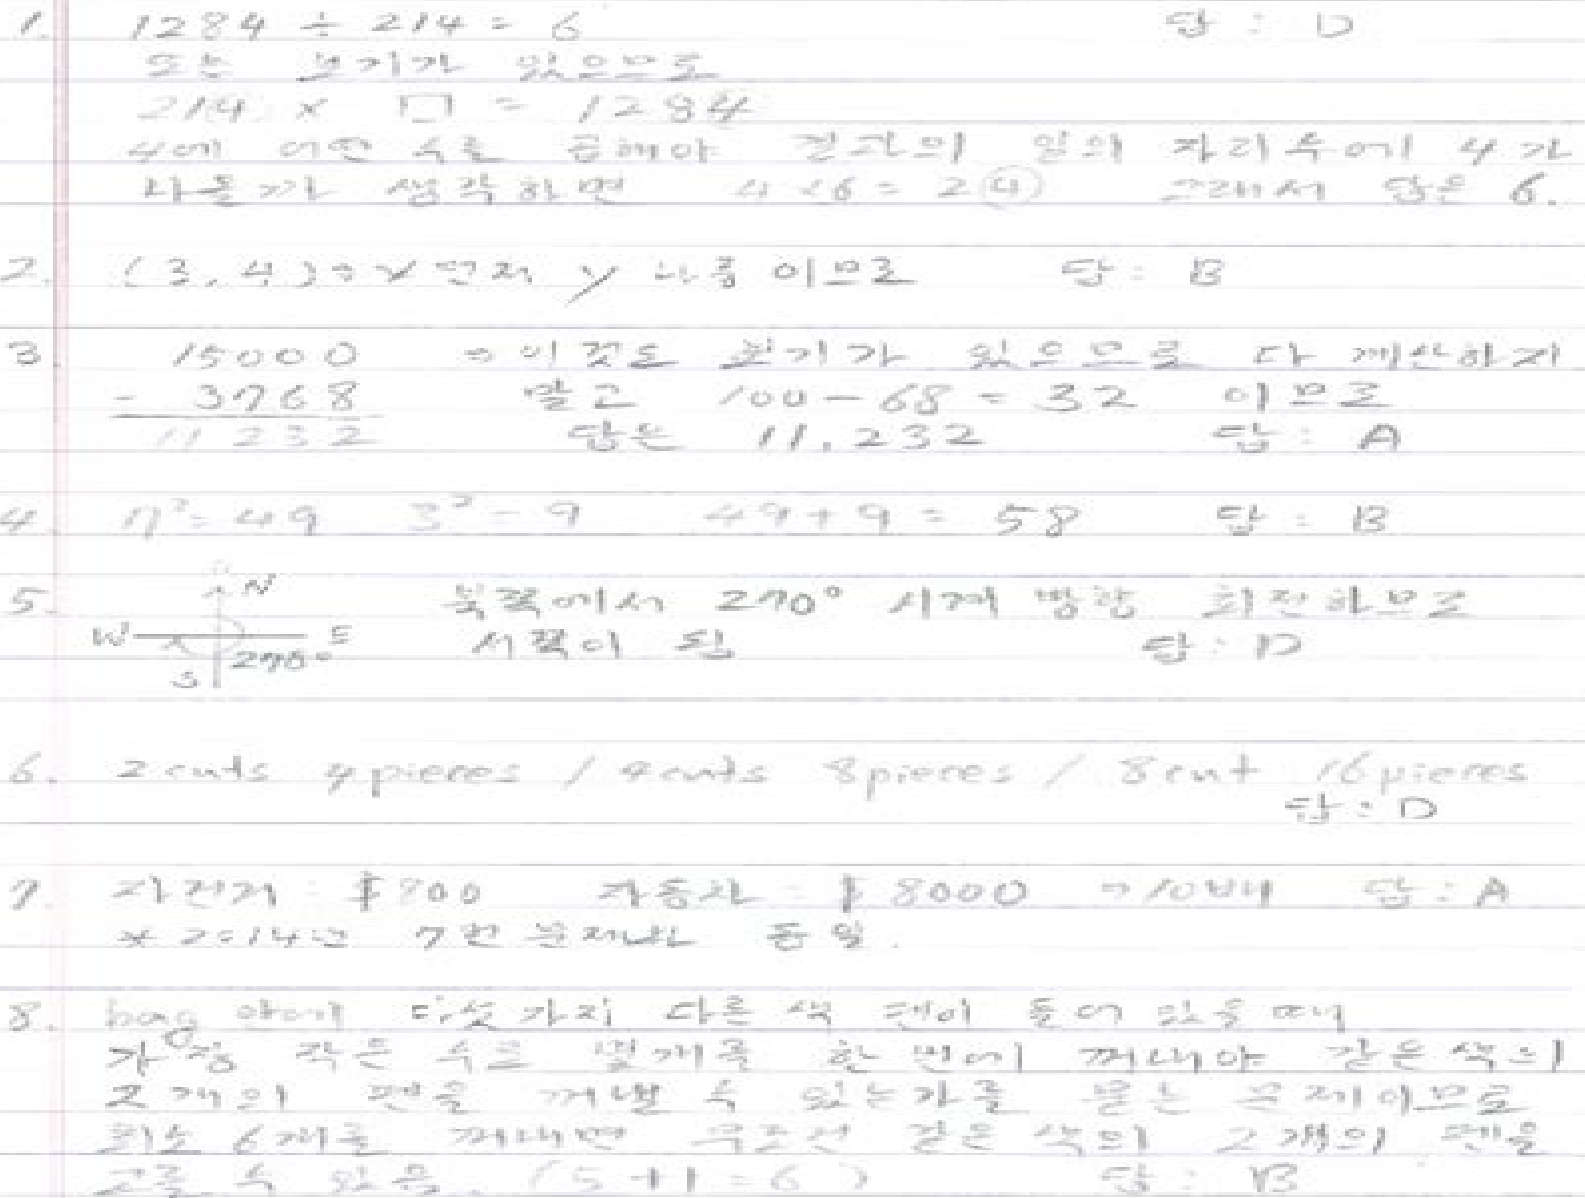 1. 1284 ÷ 214 = 6 답 : D
또는 보기가 있으므로
214 × □ = 1284
4에 어떤 수를 곱해야 결과의 일의 자리수에 4가
나올까 생각하면 4×6 = 2④ 그래서 답은 6.
2. (3, 4) ⇒ x 먼저 y 나중 이므로 답 : B
3. 15000 ⇒ 이것도 보기가 있으므로 다 계산하지
- 3768 말고 100 - 68 = 32 이므로
11232 답은 11,232 답 : A
4. 7² = 49 3² = 9 49 + 9 = 58 답 : B
5. N 북쪽에서 270° 시계 방향 회전하므로
W E 서쪽이 됨 답 : D
270°
S
6. 2 cuts 4 pieces / 4 cuts 8 pieces / 8 cut 16 pieces
답 : D
7. 자전거 : $800 자동차 : $8000 ⇒ 10배 답 : A
* 2014년 7번 문제와 동일.
8. bag 안에 다섯가지 다른 색 펜이 들어 있을 때
가장 작은 수로 몇개를 한 번에 꺼내야 같은 색의
2개의 펜을 꺼낼 수 있는가를 묻는 문제이므로
최소 6개를 꺼내면 무조건 같은 색의 2개의 펜을
고를 수 있음. (5+1=6) 답 : B